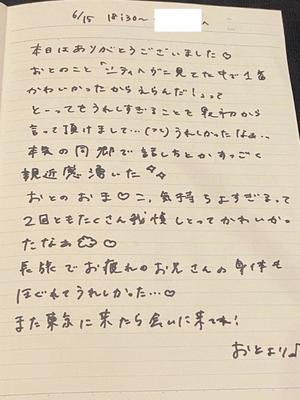 6/15 18:30〜
本日はありがとうございました♡
おとのこと「シティヘブン見てた中で1番
かわいかったからえらんだ！」って
とーってもうれしすぎることを最初から
言って頂けまして…(ᵔᵕᵔ)うれしかったなぁ…
本気の同郷で話し方とかすっごく
親近感湧いた
おとのおま♡こ、気持ちよすぎるって
2回ともたくさん我慢しとってかわいかっ
たなぁ♡
長旅でお疲れのお兄さんの身体も
ほぐれてうれしかった…♡
また東京に来たら会いに来てね！
おとより♪